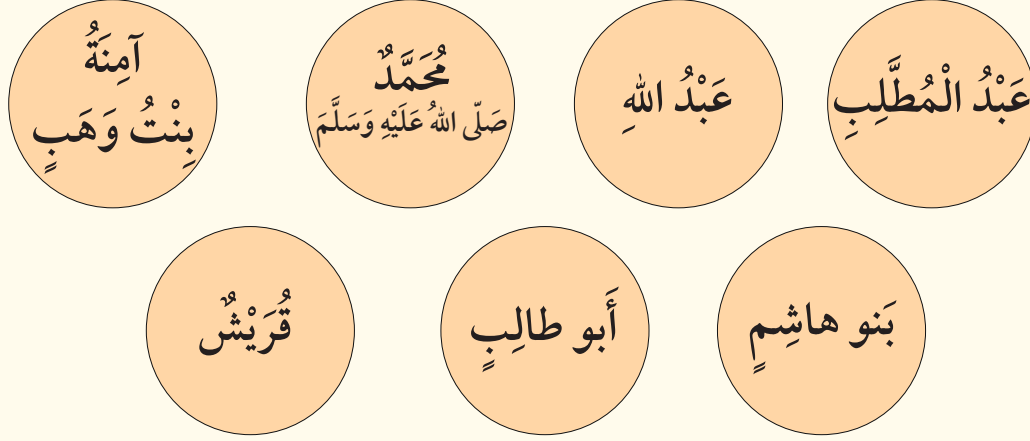 عَبْدُ الْمُطَّلِبِ
عَبْدُ اللهِ
مُحَمَّدٌ
صَلّى اللهُ عَلَيْهِ وَسَلَّمَ
آمِنَةُ
بِنْتُ وَهَبٍ
بَنو هاشِمٍ
أَبو طالِبٍ
قُرَيْشٌ